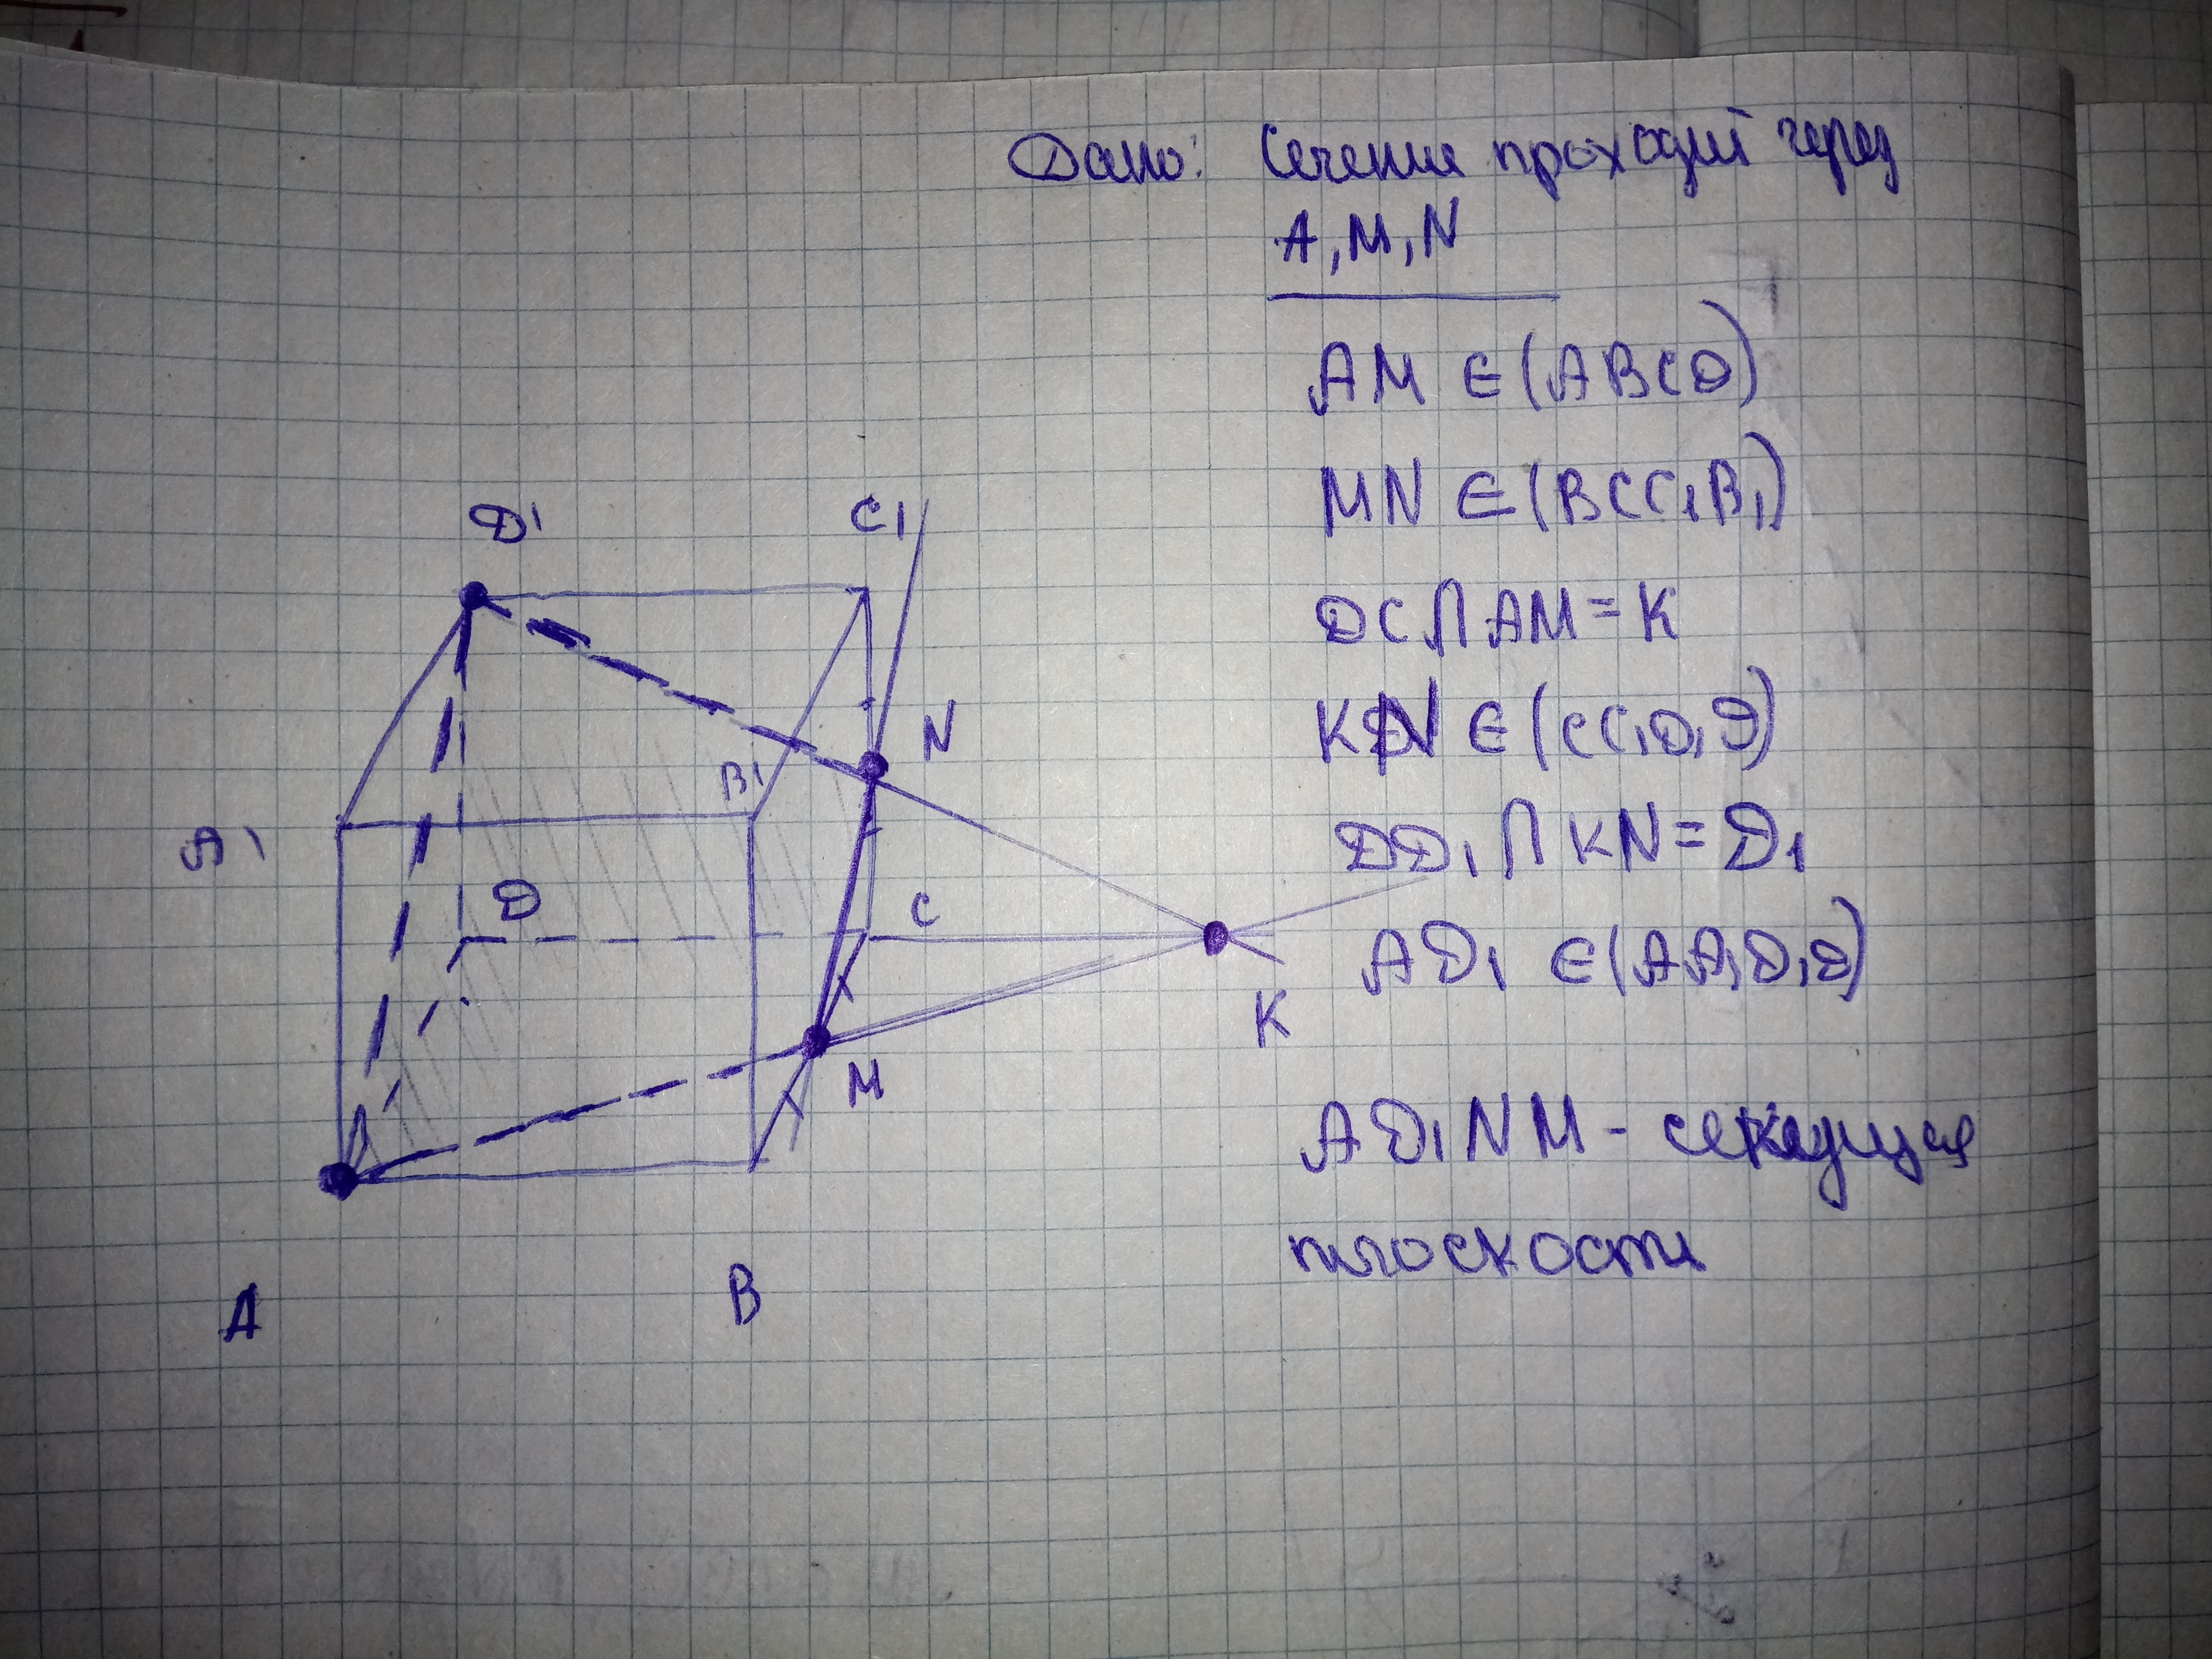 Дано: Сечение проходит через
A, M, N
AM ∈ (ABCD)
MN ∈ (BCC₁B₁)
DC ∩ AM = K
KN ∈ (CC₁D₁D)
DD₁ ∩ KN = D₁
AD₁ ∈ (AA₁D₁D)
AD₁NM - секущая
плоскость
D¹
C₁
N
B¹
A¹
D
C
K
M
A
B